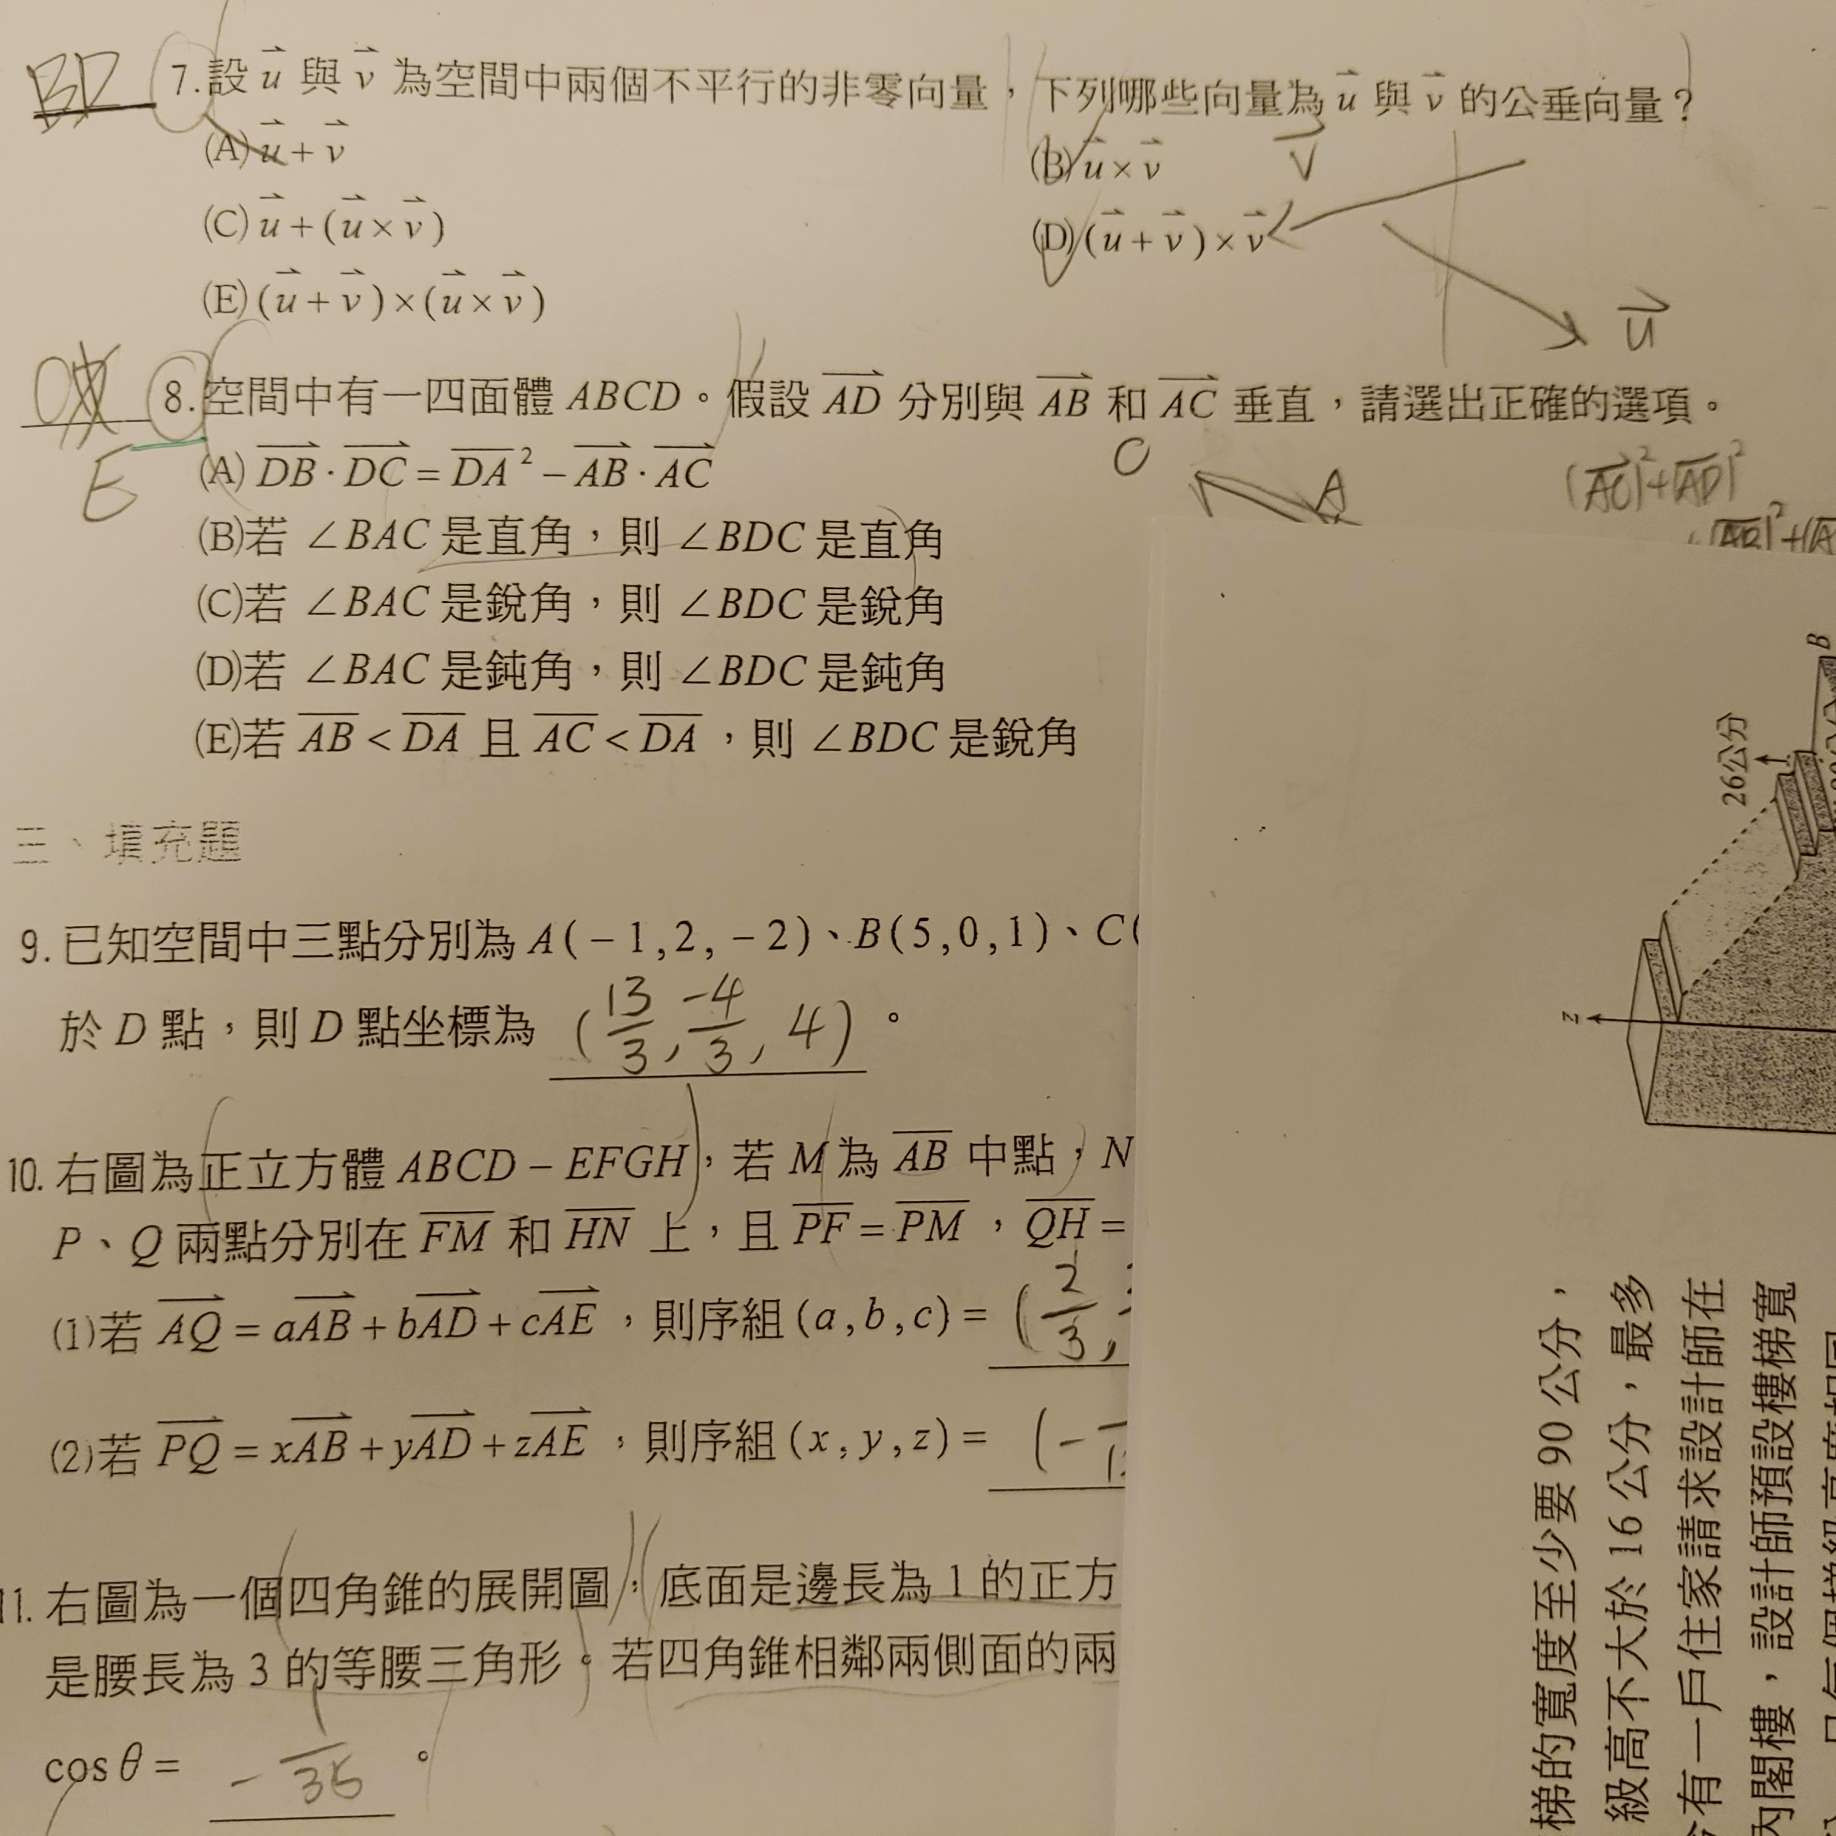 BD 7.設 u 與 v 為空間中兩個不平行的非零向量，下列哪些向量為 u 與 v 的公垂向量？
(A) u + v
(B) u × v
v
(C) u + (u × v)
(D) (u + v) × v
(E) (u + v) × (u × v)
u
8.空間中有一四面體 ABCD。假設 AD 分別與 AB 和 AC 垂直，請選出正確的選項。
E
(A) DB · DC = DA² − AB · AC
C
A
|AC|²+|AD|²
(B)若 ∠BAC 是直角，則 ∠BDC 是直角
(C)若 ∠BAC 是銳角，則 ∠BDC 是銳角
(D)若 ∠BAC 是鈍角，則 ∠BDC 是鈍角
(E)若 AB < DA 且 AC < DA，則 ∠BDC 是銳角
三、填充題
9.已知空間中三點分別為 A(−1,2,−2)、B(5,0,1)、C(
於 D 點，則 D 點坐標為 (13/3, -4/3, 4)。
10.右圖為正立方體 ABCD − EFGH，若 M 為 AB 中點，N
P、Q 兩點分別在 FM 和 HN 上，且 PF = PM，QH =
(1)若 AQ = aAB + bAD + cAE，則序組 (a,b,c) = (2/3,
(2)若 PQ = xAB + yAD + zAE，則序組 (x,y,z) = (-
11.右圖為一個四角錐的展開圖，底面是邊長為 1 的正方
是腰長為 3 的等腰三角形。若四角錐相鄰兩側面的兩
cos θ = -1/35。
B
26公分
z
梯的寬度至少要 90 公分，
級高不大於 16 公分，最多
有一戶住家請求設計師在
內閣樓，設計師預設樓梯寬